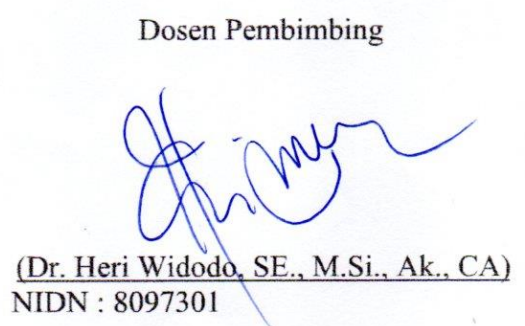 Dosen Pembimbing
(Dr. Heri Widodo, SE., M.Si., Ak., CA)
NIDN : 8097301